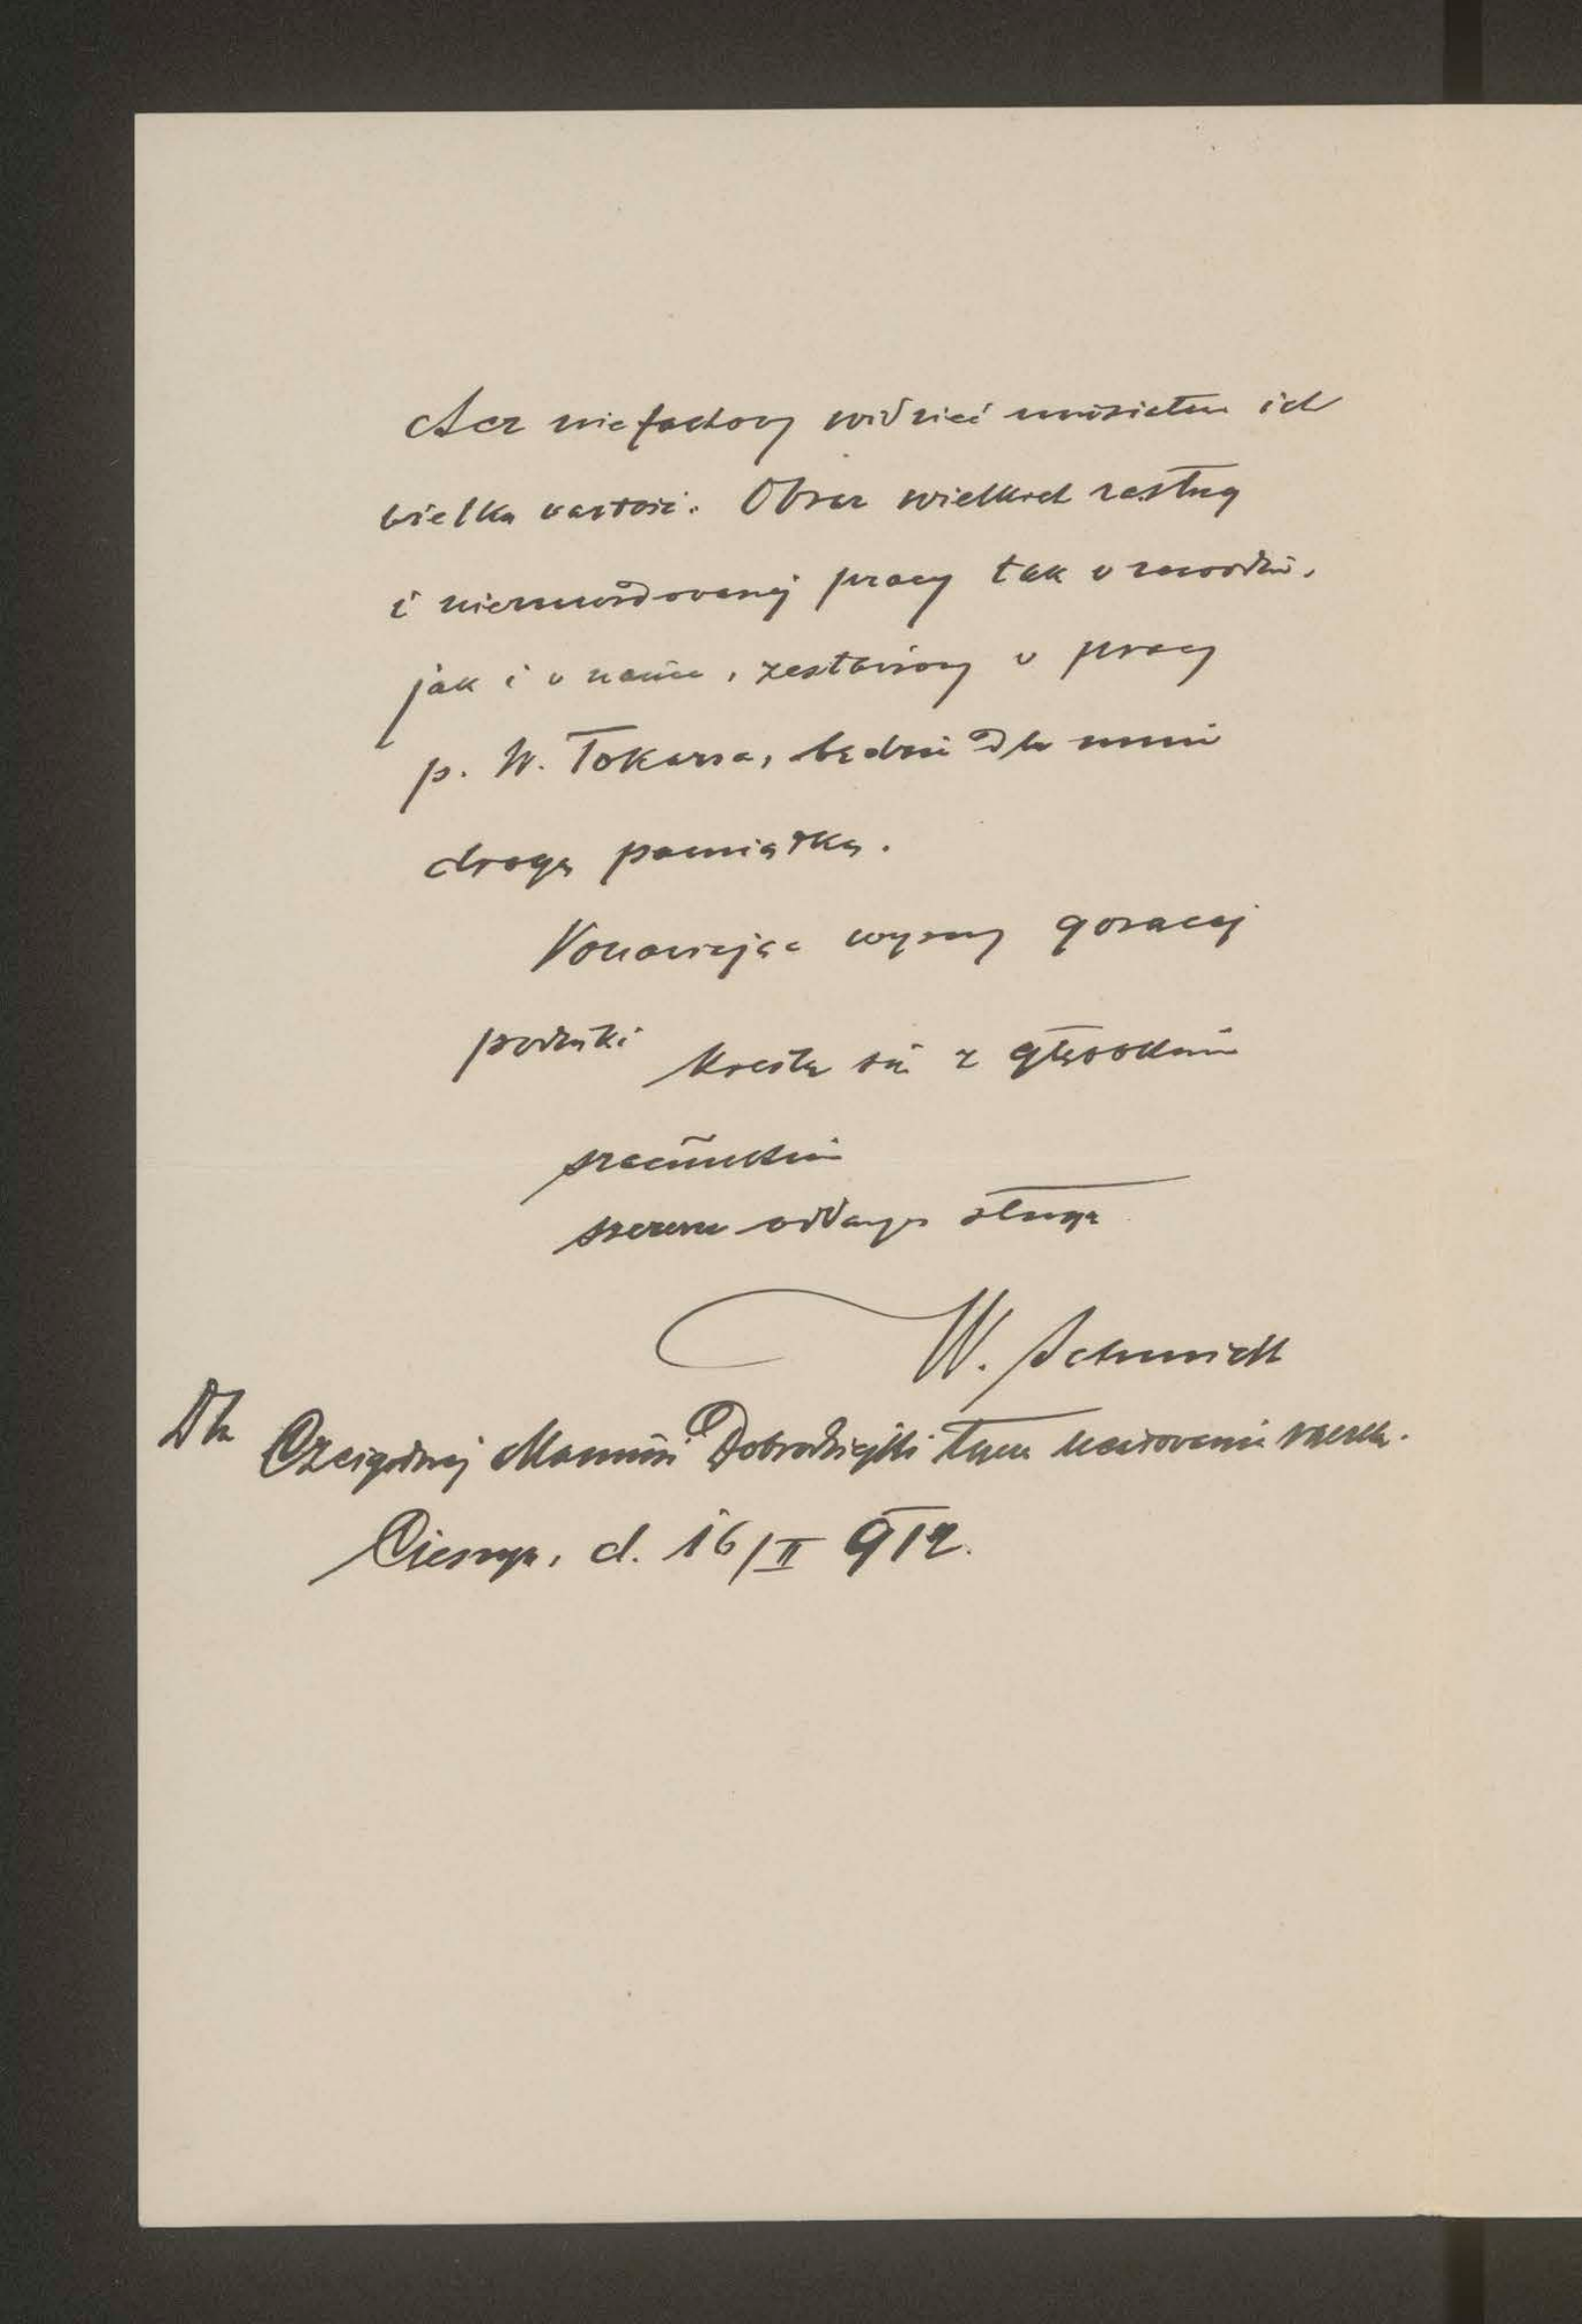 Acz niefachowy widzieć musiałem ich
wielką wartość. Obraz wielkich zasług
i niezmordowanej pracy tak w zawodzie,
jak i w nauce, zestawiony w pracy
p. W. Tokarza, będzie dla mnie
drogą pamiątką.
Ponawiając wyrazy gorącej
podzięki kreślę się z głębokim
szacunkiem
szczerze oddany sługa
W. Schmidt
Dla Czcigodnej Mamusi Dobrodziejki łączę ucałowania rączek.
Cieszyn, d. 16/II 912.